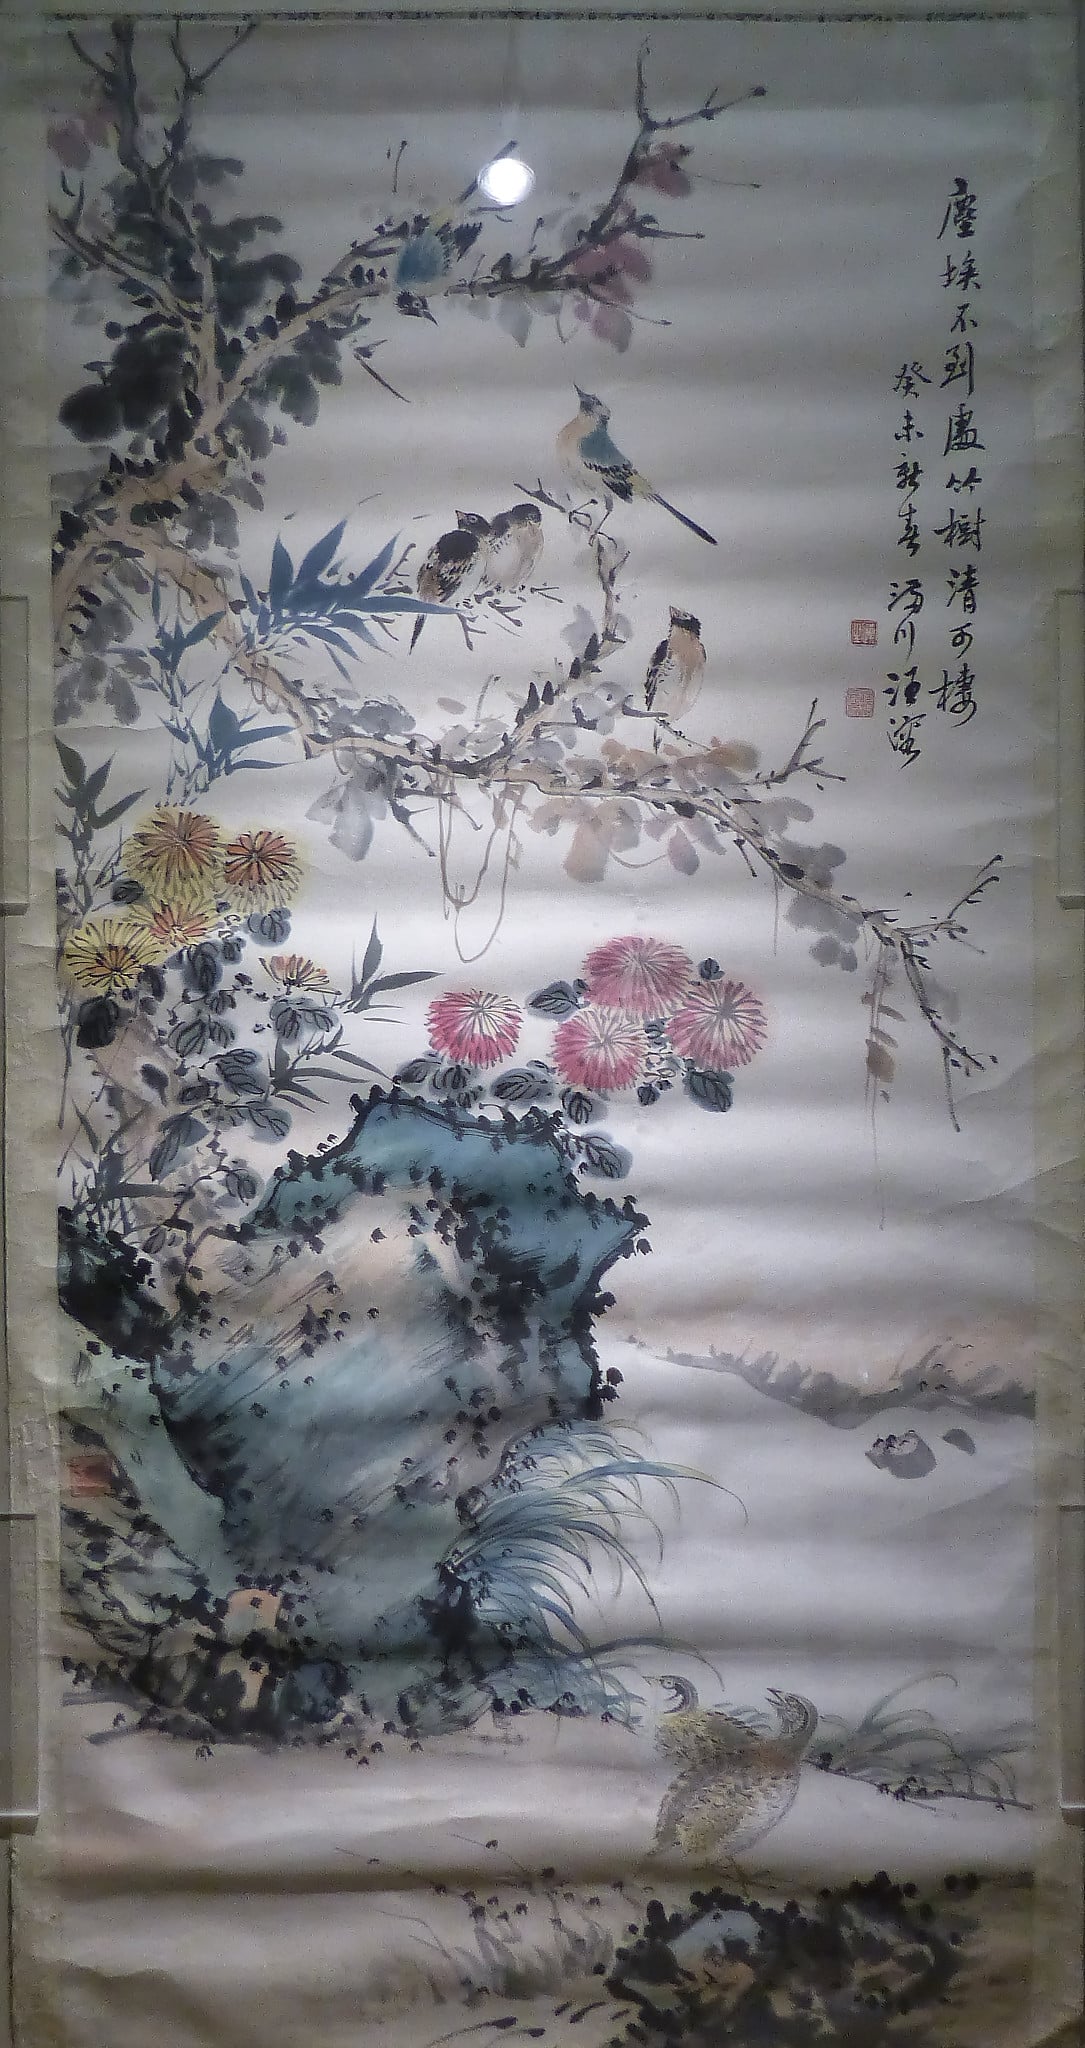 塵埃不到處竹樹清可棲
癸未新春溈川汪深